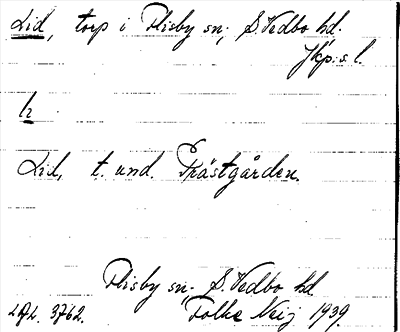 Lid, torp i Flisby sn, S. Vedbo hd.
Jkp:s l.
h
Lid, t. und. Prästgården.
Flisby sn. S. Vedbo hd
3762. Folke Neij 1939.